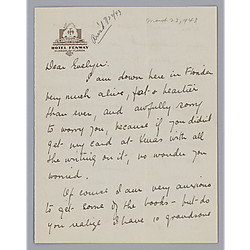 HOTEL FENWAY
March 23, 1943
Dear Evelyn:
I am down here in Florida
very much alive, fat & heartier
than ever, and awfully sorry
to worry you, because if you didn't
get my card at Xmas with all
the writing on it, no wonder you
worried.
Of course I am very anxious
to get some of the books - but do
you realize I have 10 grandsons